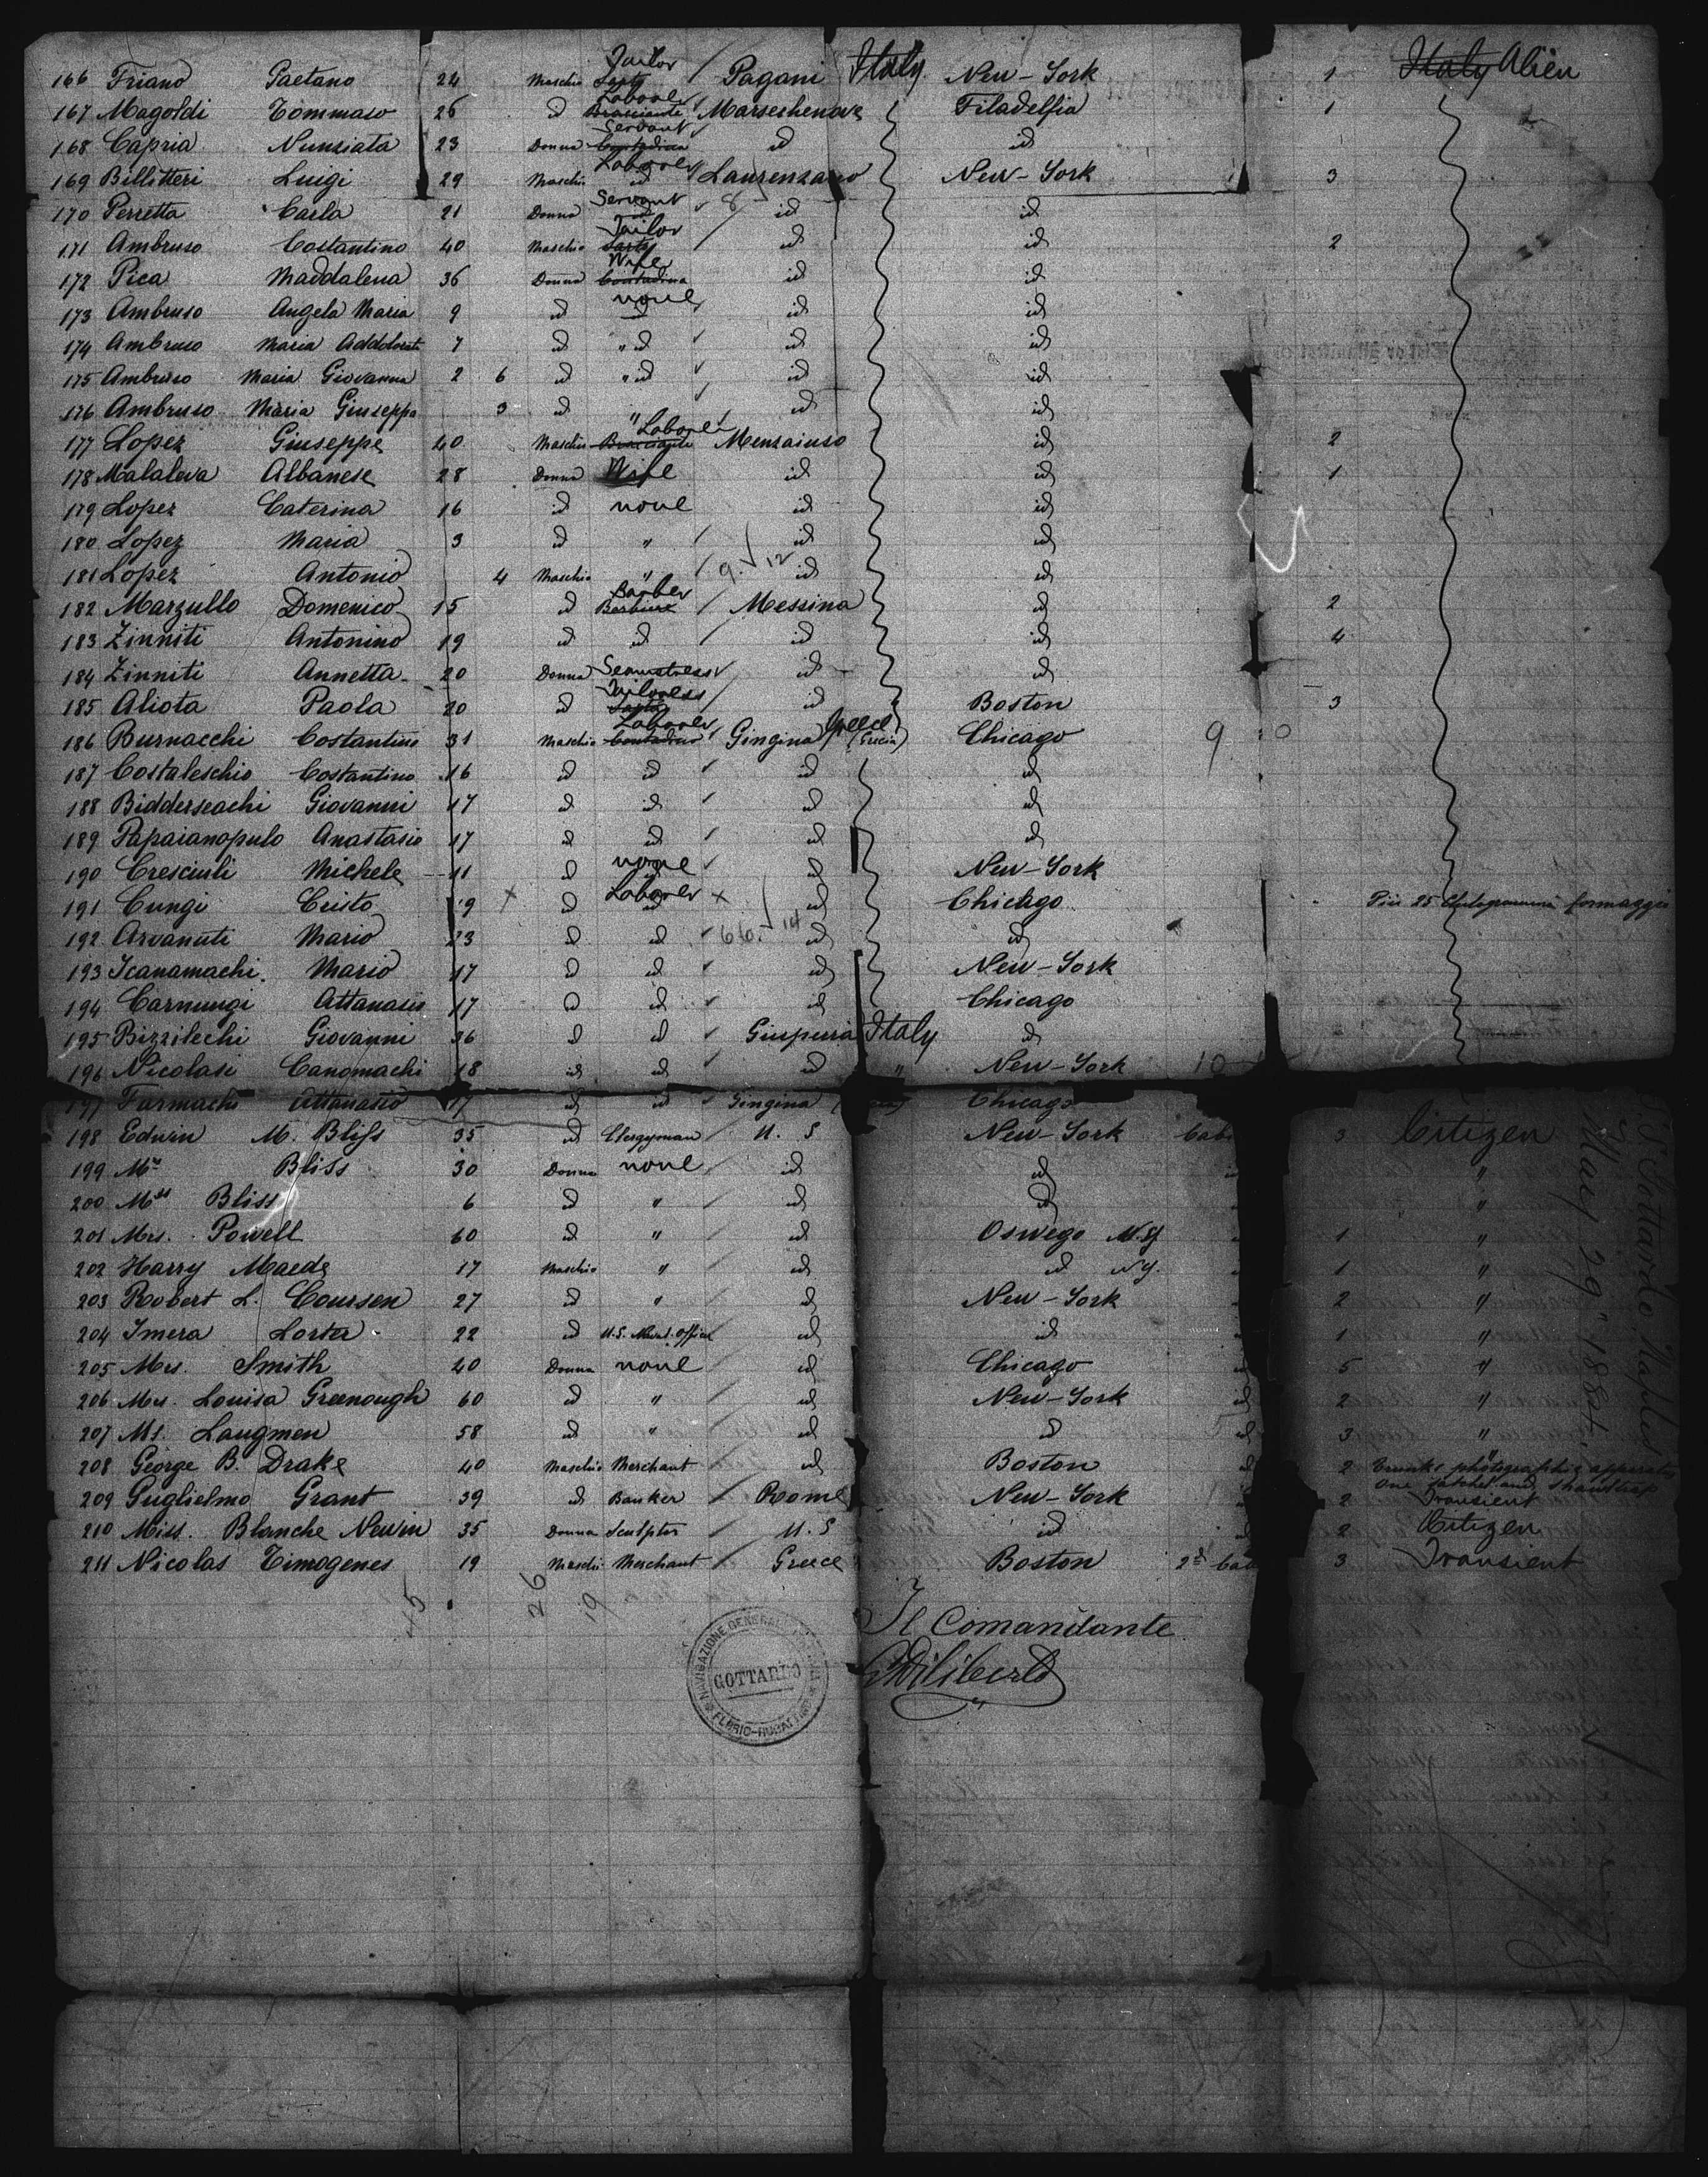 166 Friano Gaetano 24 Maschio Sarto Tailor / Pagani Italy New-York 1 Italy Alien
167 Magoldi Tommaso 26 id Bracciante Laborer Filadelfia 1
168 Capria Nunziata 23 Donna Contadina Servant id id
169 Billitteri Luigi 29 Maschio id Laborer Laurenzano New-York 3
170 Perretta Carla 21 Donna id Servant id id
171 Ambruso Costantino 40 Maschio Sarto Tailor / id id 2
172 Pica Maddalena 36 Donna Contadina Wife id id
173 Ambruso Angela Maria 9 id none id id
174 Ambruso Maria Addolorata 7 id " id id id
175 Ambruso Maria Giovanna 2 6 id " id id id
176 Ambruso Maria Giuseppa 3 id " id id
177 Lopez Giuseppe 40 Maschio Bracciante Laborer id 2
178 Malaleva Albanese 28 Donna Wife id id 1
179 Lopez Caterina 16 id none id id
180 Lopez Maria 3 id " / id id
181 Lopez Antonio 4 Maschio " / 9. 12 id id
182 Marzullo Domenico 15 id Barbiere Barber / Messina id 2
183 Zinniti Antonino 19 id id / id id 4
184 Zinniti Annetta 20 Donna Seamstress id id
185 Aliota Paola 20 id Sarta Tailoress / id Boston 3
186 Burnacchi Costantino 31 Maschio Contadino Laborer Gingina Greece (Grecia) Chicago 9
187 Costaleschio Costantino 16 id id id id
188 Bidderseachi Giovanni 17 id id id id
189 Papaianopulo Anastasio 17 id id id id
190 Cresciuli Michele 11 id none id New-York
191 Cungi Cristo 19 x id Laborer x id Chicago Più 25 formaggio
192 Arvanuti Mario 23 id id 14 id id
193 Icanamachi Mario 17 id id id New-York
194 Carnungi Attanasio 17 id id id Chicago
195 Bizzilechi Giovanni 36 id id Italy id
196 Nicolasi Canomachi 18 id id id " New-York 10
197 Furmachi Attanasio 17 id id Gingina Chicago
198 Edwin M. Bliss 35 id Clergyman / U. S New-York Cab 3 Citizen
199 Mrs Bliss 30 Donna none / id id "
200 Mss Bliss 6 id " / id id "
201 Mrs. Powell 60 id " / id Oswego N.Y 1 "
202 Harry Maede 17 Maschio " / id id N.Y. 1 "
203 Robert L. Coursen 27 id " / id New-York 2 "
204 Imera Lorter 22 id U.S. Naval. Officer id id 1 "
205 Mrs. Smith 40 Donna none / id Chicago id 5 "
206 Mrs. Louisa Greenough 60 id " / id New-York id 2 "
207 Ms. Laugmen 58 id " / id id id 3 "
208 George B. Drake 40 Maschio Merchant / id Boston id 2 Trunks photographic apparatus
One satchel and Shawlstrap
209 Guglielmo Grant 39 id Banker / Rome New-York id 2 Transient
210 Miss. Blanche Nevin 35 Donna Sculptor U. S id id 2 Citizen
211 Nicolas Timogenes 19 Maschio Merchant / Greece Boston 2d Cab 3 Transient
45 26 19
Il Comandante
NAVIGAZIONE GENERALE
GOTTARDO
FLORIO-RUBATTINO
S.S. Gottardo Naples
May 29" 188